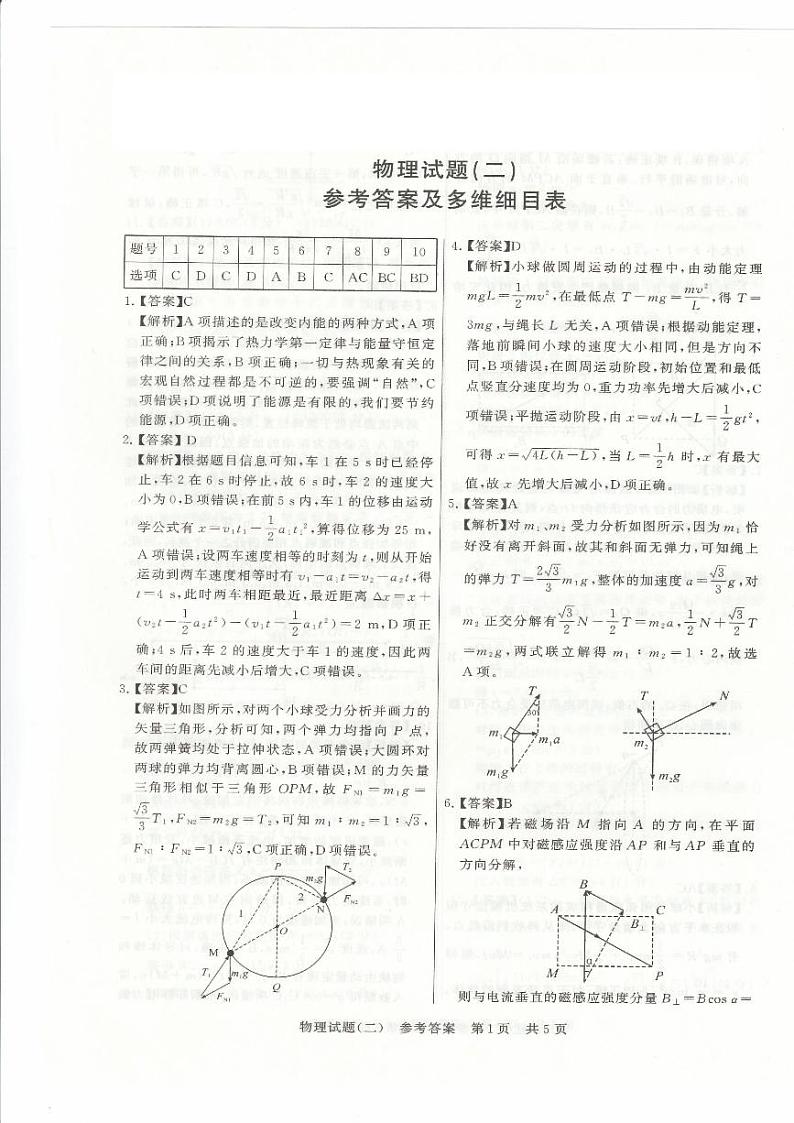 物理试题(二)
参考答案及多维细目表
题号 1 2 3 4 5 6 7 8 9 10
选项 C D C D A B C AC BC BD
1.【答案】C
【解析】A 项描述的是改变内能的两种方式,A 项
正确;B 项揭示了热力学第一定律与能量守恒定
律之间的关系,B 项正确;一切与热现象有关的
宏观自然过程都是不可逆的,要强调“自然”,C
项错误;D 项说明了能源是有限的,我们要节约
能源,D 项正确。
2.【答案】D
【解析】根据题目信息可知,车 1 在 5 s 时已经停
止,车 2 在 6 s 时停止,故 6 s 时,车 2 的速度大
小为 0,B 项错误;在前 5 s 内,车 1 的位移由运动
学公式有 x=v₁t₁-1/2a₁t₁²,算得位移为 25 m,
A 项错误;设两车速度相等的时刻为 t,则从开始
运动到两车速度相等时有 v₁-a₁t=v₂-a₂t,得
t=4 s,此时两车相距最近,最近距离 Δx=x+
(v₂t-1/2a₂t²)-(v₁t-1/2a₁t²)=2 m,D 项正
确;4 s 后,车 2 的速度大于车 1 的速度,因此两
车间的距离先减小后增大,C 项错误。
3.【答案】C
【解析】如图所示,对两个小球受力分析并画力的
矢量三角形,分析可知,两个弹力均指向 P 点,
故两弹簧均处于拉伸状态,A 项错误;大圆环对
两球的弹力均背离圆心,B 项错误;M 的力矢量
三角形相似于三角形 OPM,故 F_N1=m₁g=
√3/3T₁,F_N2=m₂g=T₂,可知 m₁∶m₂=1∶√3,
F_N1∶F_N2=1∶√3,C 项正确,D 项错误。
P
T₂
m₂g
1
2
N
F_N2
O
M
T₁
m₁g
F_N1
Q
4.【答案】D
【解析】小球做圆周运动的过程中,由动能定理
mgL=1/2mv²,在最低点 T-mg=mv²/L,得 T=
3mg,与绳长 L 无关,A 项错误;根据动能定理,
落地前瞬间小球的速度大小相同,但是方向不
同,B 项错误;在圆周运动阶段,初始位置和最低
点竖直分速度均为 0,重力功率先增大后减小,C
项错误;平抛运动阶段,由 x=vt,h-L=1/2gt²,
可得 x=√4L(h-L),当 L=1/2h 时,x 有最大
值,故 x 先增大后减小,D 项正确。
5.【答案】A
【解析】对 m₁、m₂ 受力分析如图所示,因为 m₁ 恰
好没有离开斜面,故其和斜面无弹力,可知绳上
的弹力 T=2√3/3m₁g,整体的加速度 a=√3/3g,对
m₂ 正交分解有√3/2N-1/2T=m₂a,1/2N+√3/2T
=m₂g,两式联立解得 m₁∶m₂=1∶2,故选
A 项。
T
30°
m₁
m₁a
m₁g
T
N
m₂
m₂g
6.【答案】B
【解析】若磁场沿 M 指向 A 的方向,在平面
ACPM 中对磁感应强度沿 AP 和与 AP 垂直的
方向分解,
B
A
C
B⊥
α
M
P
则与电流垂直的磁感应强度分量 B⊥=Bcos α=
物理试题(二) 参考答案 第 1 页 共 5 页